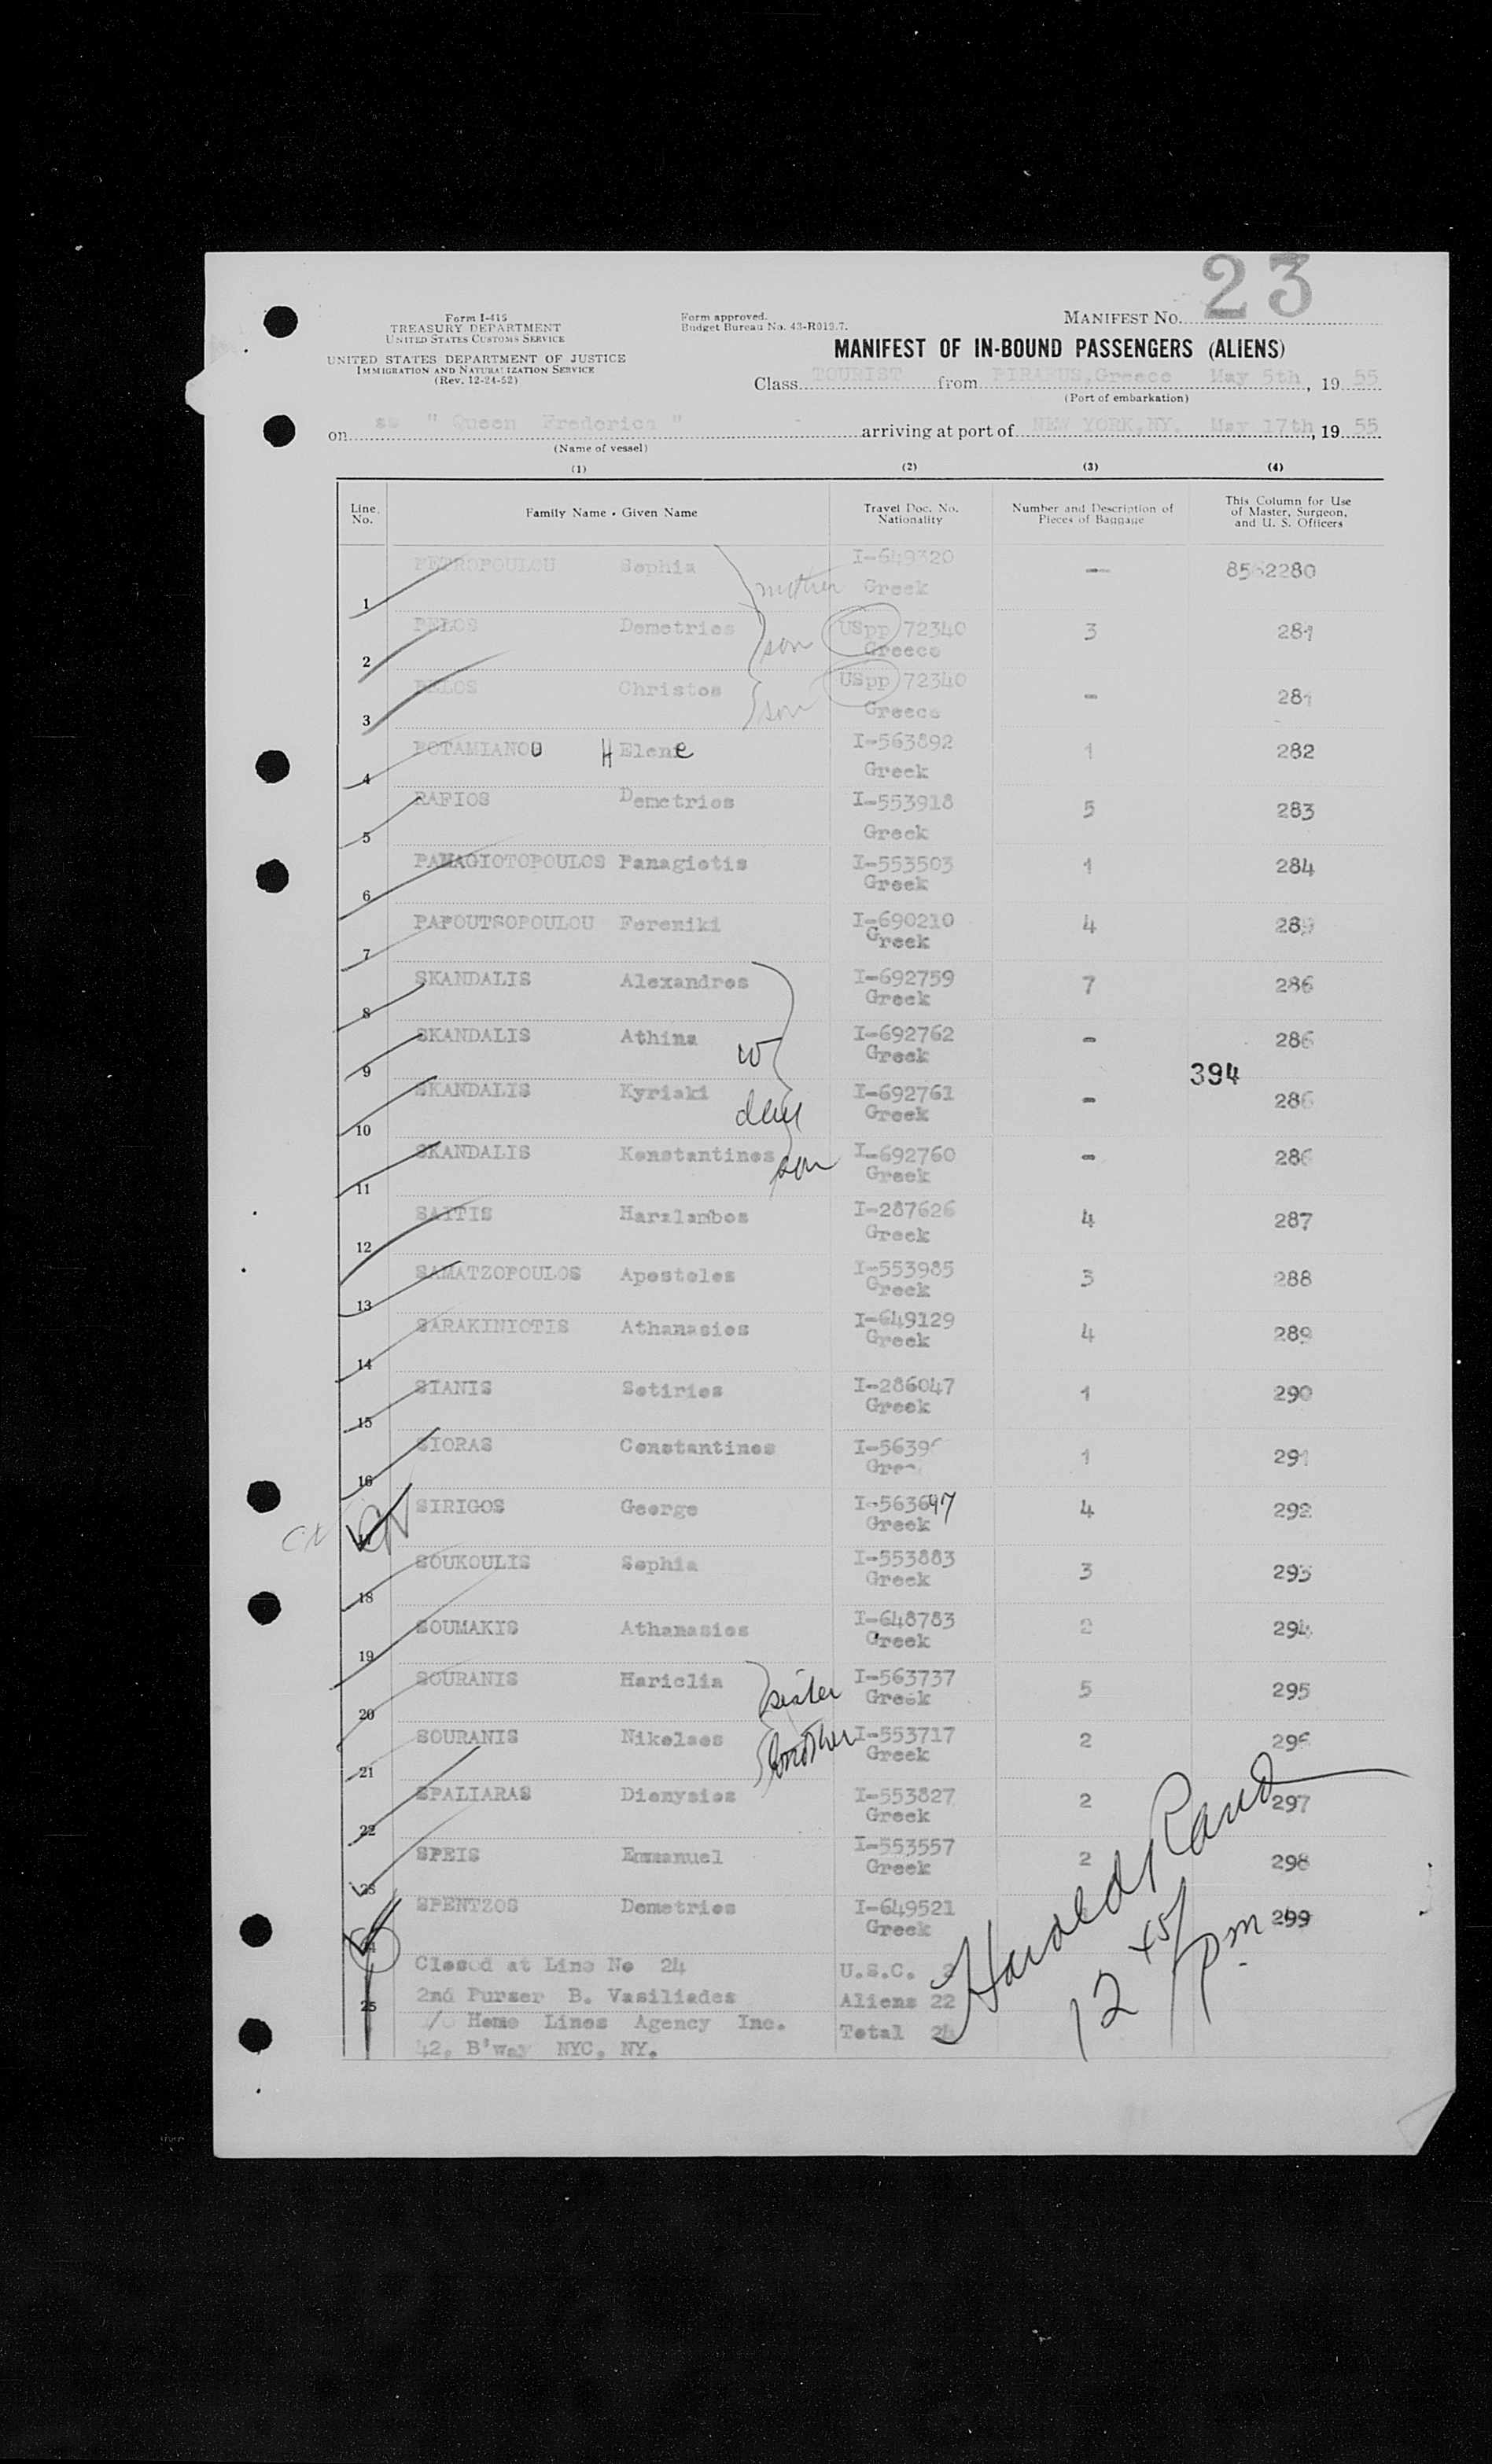 23
Form I-415
TREASURY DEPARTMENT
UNITED STATES CUSTOMS SERVICE
UNITED STATES DEPARTMENT OF JUSTICE
IMMIGRATION AND NATURALIZATION SERVICE
(Rev. 12-24-52)
Form approved.
Budget Bureau No. 43-R019.7.
MANIFEST NO.
MANIFEST OF IN-BOUND PASSENGERS (ALIENS)
Class TOURIST from PIRAEUS, Greece May 5th, 19 55
(Port of embarkation)
on ss " Queen Frederica " arriving at port of NEW YORK, NY. May 17th, 19 55
(Name of vessel)
(1) (2) (3) (4)
Line No. Family Name • Given Name Travel Doc. No. Nationality Number and Description of Pieces of Baggage This Column for Use of Master, Surgeon, and U. S. Officers
1 PETROPOULOU Sophia mother I-649320 Greek - 8562280
2 PELOS Demetrios son USpp 72340 Greece 3 281
3 PELOS Christos son USpp 72340 Greece - 281
4 POTAMIANOU HElene I-563892 Greek 1 282
5 RAFIOS Demetrios I-553918 Greek 5 283
6 PANAGIOTOPOULOS Panagiotis I-553503 Greek 1 284
7 PAPOUTSOPOULOU Fereniki I-690210 Greek 4
8 SKANDALIS Alexandros I-692759 Greek 7 286
9 SKANDALIS Athina w I-692762 Greek - 286
394
10 SKANDALIS Kyriaki dau I-692761 Greek - 286
11 SKANDALIS Konstantinos son I-692760 Greek - 286
12 SAITIS Haralambos I-287626 Greek 4 287
13 SAMATZOPOULOS Apostolos I-553985 Greek 3 288
14 SARAKINIOTIS Athanasios I-649129 Greek 4 289
15 STANIS Sotirios I-286047 Greek 1 290
16 SIORAS Constantinos 1 291
SIRIGOS George I-563697 Greek 4 292
18 SOUKOULIS Sophia I-553883 Greek 3 293
19 SOUMAKIS Athanasios I-648783 Greek 2 294
20 SOURANIS Hariclia sister I-563737 Greek 5 295
21 SOURANIS Nikolaos brother I-553717 Greek 2 296
22 SPALIARAS Dionysios I-553827 Greek 2 297
23 SPEIS Emmanuel I-553557 Greek 2 298
24 SPENTZOS Demetrios I-649521 Greek 299
25 Closed at Line No 24 U.S.C. 2
2nd Purser B. Vasiliades Aliens 22
/o Home Lines Agency Inc. Total 24
42, B'way NYC, NY.
Harold Rand
12 45/pm